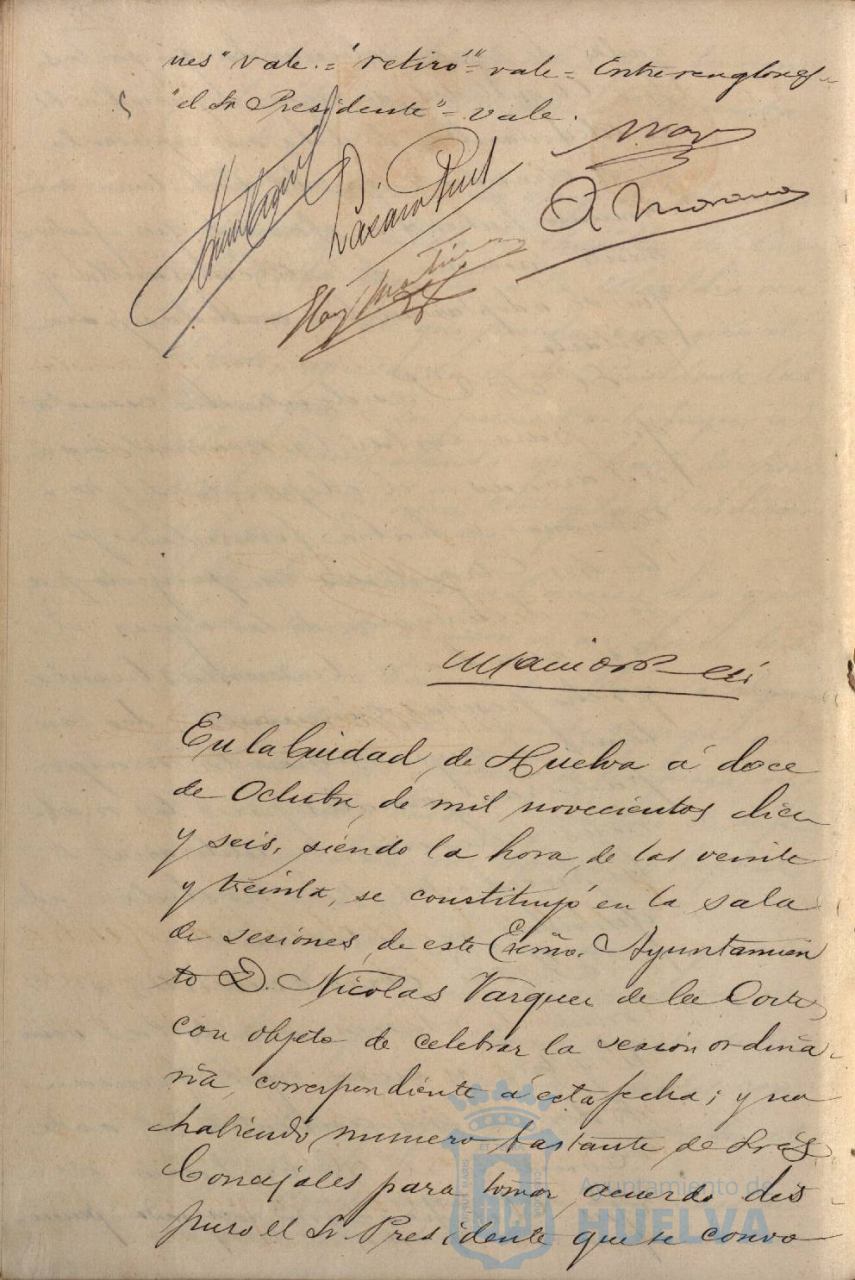 nes" vale.= "retiró"= vale= Entrerenglones=
"el Sr Presidente"= vale.
Lázaro Puis
A Moreno
Martinez
En la Ciudad de Huelva á doce
de Octubre de mil novecientos diez
y seis, siendo la hora de las veinte
y treinta, se constituyó en la sala
de sesiones de este Excmo. Ayuntamien
to D. Nicolas Vazquez de la Corte
con objeto de celebrar la sesion ordina-
ria, correspondiente á esta fecha; y no
habiendo numero bastante de Sres.
Concejales para tomar acuerdo dis
puso el Sr Presidente que se convo
Ayuntamiento de
HUELVA